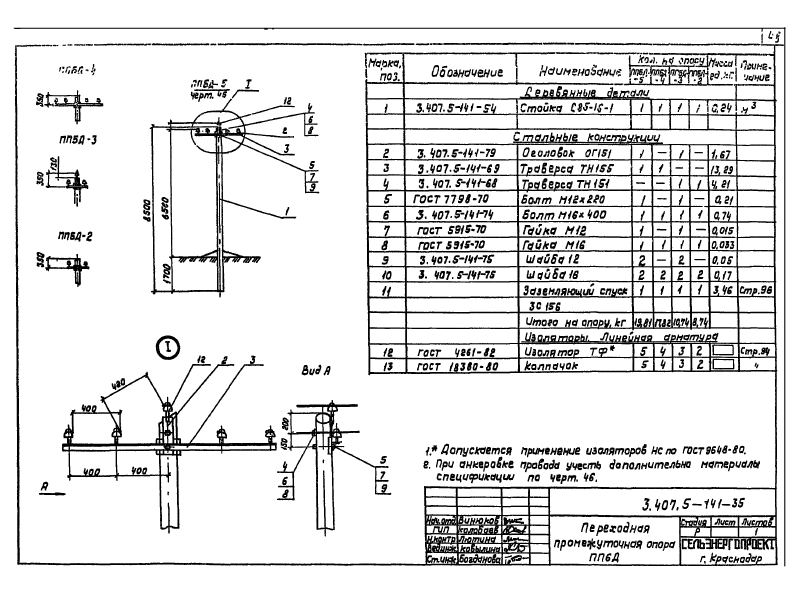 ППБД-4
350
ППБД-3
130
350
ППБД-2
350
ППБД-5
черт. 46
I
12
4
6
8
2
3
5
7
9
1
8500
6520
1700
I
12
2
3
420
400
400
400
А
Вид А
200
150
4
6
8
5
7
9
Марка, поз.
Обозначение
Наименование
Кол. на опору
Масса ед., кг
Приме-чание
Деревянные детали
1 3.407.5-141-54 Стойка С85-16-1 1 1 1 1 0,24 м³
Стальные конструкции
2 3.407.5-141-79 Оголовок ОГ151 1 — 1 — 1,67
3 3.407.5-141-69 Траверса ТН155 1 1 — — 13,29
4 3.407.5-141-68 Траверса ТН151 — — 1 1 4,21
5 ГОСТ 7798-70 Болт М12х220 1 — 1 — 0,21
6 3.407.5-141-74 Болт М16х400 1 1 1 1 0,74
7 ГОСТ 5915-70 Гайка М12 1 — 1 — 0,015
8 ГОСТ 5915-70 Гайка М16 1 1 1 1 0,033
9 3.407.5-141-75 Шайба 12 2 — 2 — 0,05
10 3.407.5-141-75 Шайба 18 2 2 2 2 0,17
11 Заземляющий спуск 1 1 1 1 3,46 Стр.96
ЗС 156
Итого на опору, кг 19,81 17,82 10,74 8,74
Изоляторы. Линейная арматура
12 ГОСТ 4261-82 Изолятор ТФ* 5 4 3 2 Стр.94
13 ГОСТ 18380-80 Колпачок 5 4 3 2 "
1.* Допускается применение изоляторов НС по ГОСТ 9648-80.
2. При анкеровке провода учесть дополнительно материалы
спецификации по черт. 46.
3.407.5-141-35
Нач.отд. Винюков
ГИП Колобаев
Н.контр Лютина
Вед.инж. Ковылина
Ст.инж. Богданова
Переходная
промежуточная опора
ППБД
Стадия Лист Листов
Р 1
СЕЛЬЭНЕРГОПРОЕКТ
г. Краснодар